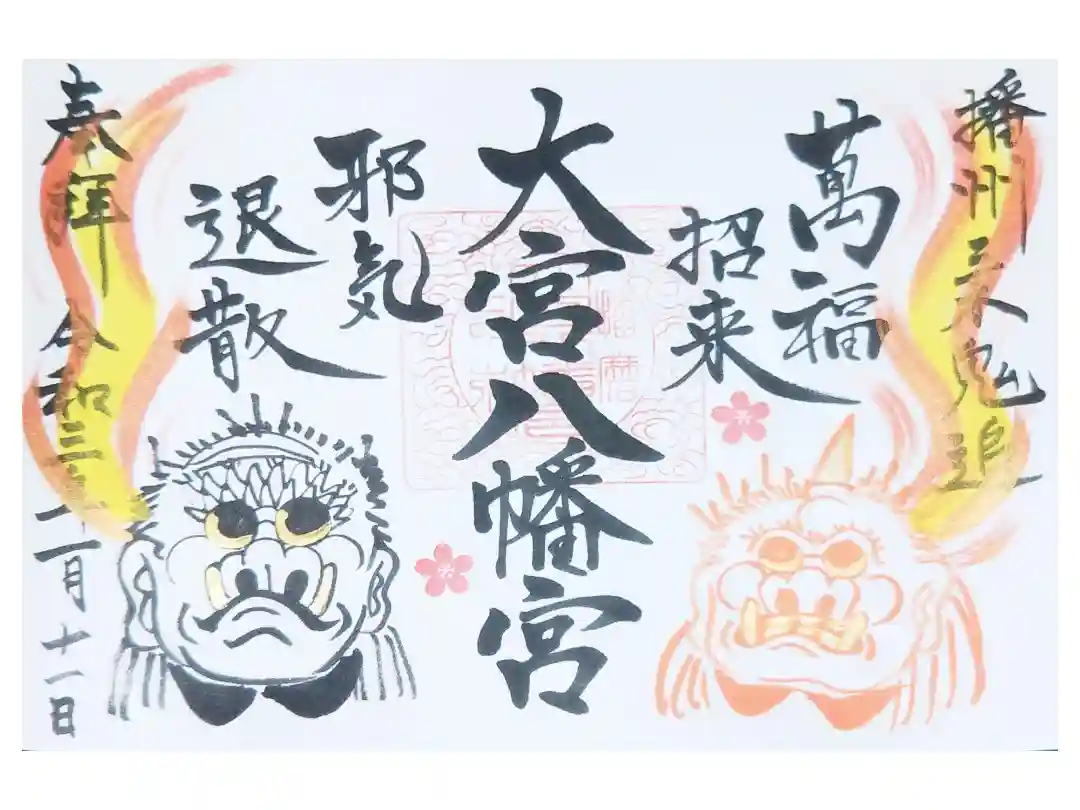 播州三木鬼追
萬福
招来
大宮八幡宮
邪気
退散
奉拝 令和三年二月十一日